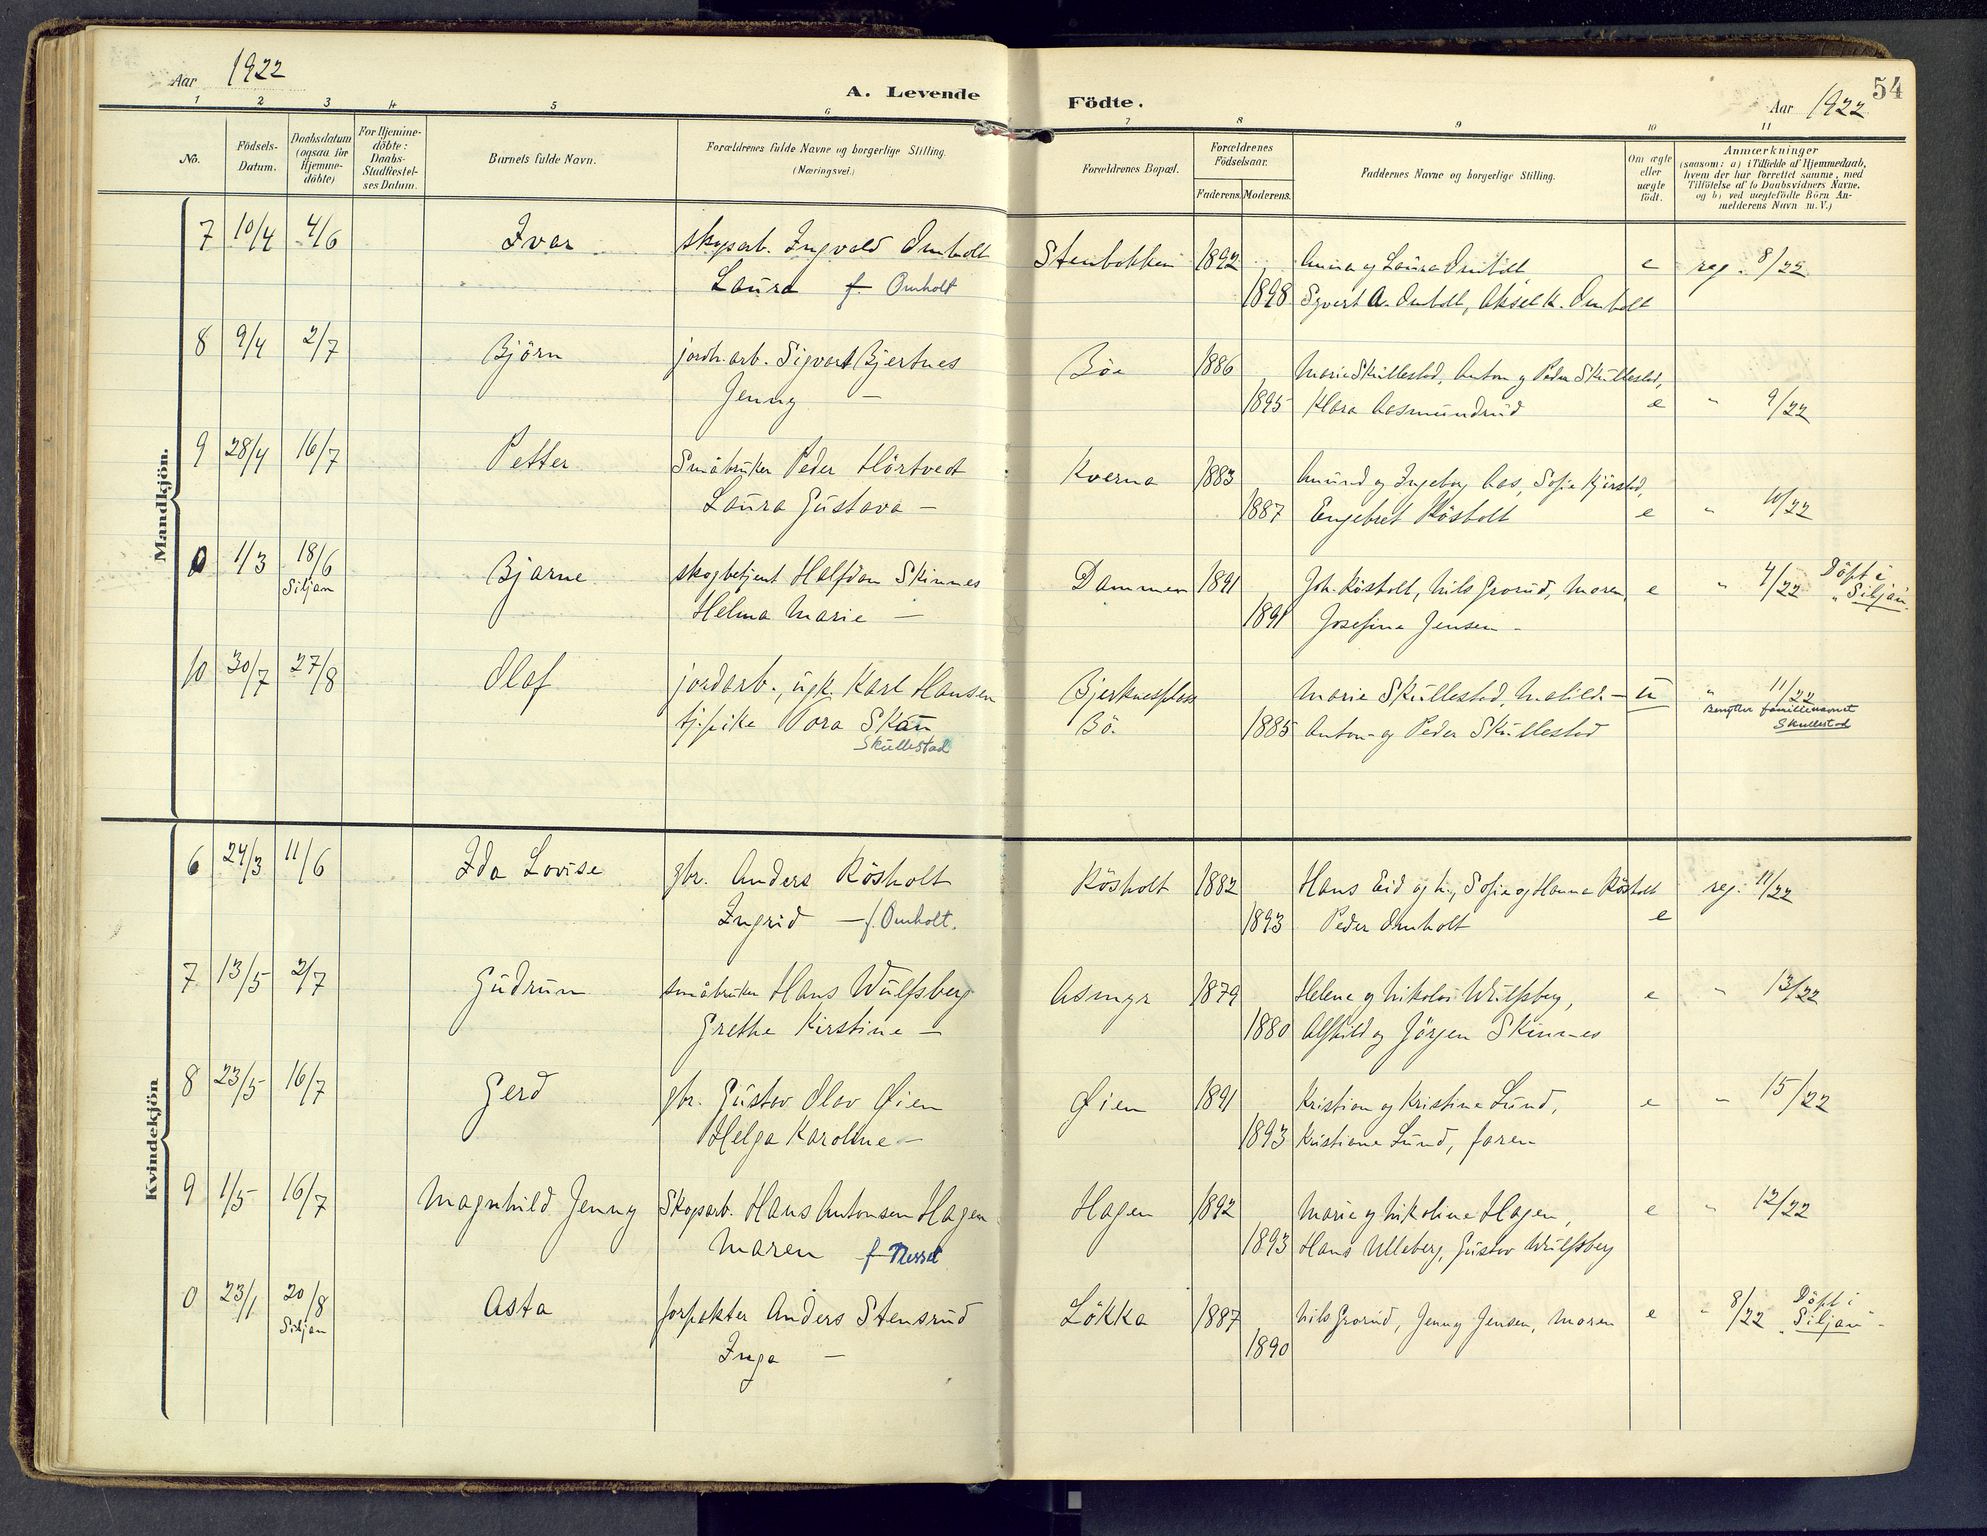 Aar 1922
A. Levende
Födte.
Aar 1922
54
1 2 3 4 5 6 7 8 9 10 11
No.
Födsels-
Datum.
Daabsdatum
(ogsaa for
Hjemme-
döbte)
For Hjemme-
döbte:
Daabs-
Stadfæstel-
ses Datum.
Barnets fulde Navn.
Forældrenes fulde Navne og borgerlige Stilling.
(Næringsvei.)
Forældrenes Bopæl.
Forældrenes
Födselsaar.
Faderens. Moderens.
Faddernes Navne og borgerlige Stilling.
Om ægte
eller
uægte
födt.
Anmærkninger
(saasom: a) i Tilfælde af Hjemmedaab,
hvem der har forrettet samme, med
Tilföielse af to Daabsvidners Navne.
og b) ved uægtefödte Börn An-
melderens Navn m. V.)
Mandkjön.
7 10/4 4/6 Ivar skogsarb. Ingvald Omholt Stenbakken 1892 Anna og Laura Omholt e reg. 8/22
Laura f. Omholt 1898 Syvert A. Omholt, Aksel K. Omholt
8 9/4 2/7 Björn jordb.arb. Sigvart Bjertnes Böe 1886 Marie Skullestad, Anton og Peder Skullestad,
Jenny — 1895 Klara Aasmundrud e " 9/22
9 28/4 16/7 Petter Småbruker Peder Hörtvedt Kverna 1883 Amund og Ingeborg Aas, Sofie
Laura Gustava — 1887 Engebret Rösholt e " 10/22
0 1/3 18/6 Bjarne skogbetjent Halfdan Skinnes Dammen 1891 Joh. Rösholt, Nils Grorud, Maren, e " 4/22 Döpt i
Siljan Helma Marie — 1891 Josefine Jensen - "Siljan"
10 30/7 27/8 Olaf jordarb., ugk. Karl Hansen Bjerknesplass Marie Skullestad, Matilde — u " 11/22
tj.pike Tora Skau Bö. 1885 Anton og Peder Skullestad Benytter familienavnet
Skullestad Skullestad
Kvindekjön
6 24/3 11/6 Ida Lovise gbr. Anders Rösholt Rösholt 1882 Hans Eid og h., Sofie og Hanna Rösholt reg. 11/22
Ingrid — f. Omholt. 1893 Peder Omholt e
7 13/5 2/7 Gudrun småbruker Hans Wulfsberg Asmyr 1879 Helene og Nikolai Wulfsberg, e " 13/22
Grethe Kirstine — 1880 Alfhild og Jörgen Skinnes
8 23/5 16/7 Gerd gbr. Gustav Olav Øien Øien 1891 Kristian og Kristine Lund, e " 15/22
Helga Karoline — 1893 Kristiane Lund, faren
9 1/5 16/7 Magnhild Jenny Skogsarb. Hans Antonsen Hagen Hagen 1892 Marie og Nikoline Hagen, e " 12/22
Maren f. 1893 Hans Ulleberg, Gustav Wulfsberg
0 23/1 20/8 Asta forpakter Anders Stensrud Lökka 1887 Nils Grorud, Jenny Jensen, Maren e " 8/22 Döpt i
Siljan Inga — 1890 "Siljan"